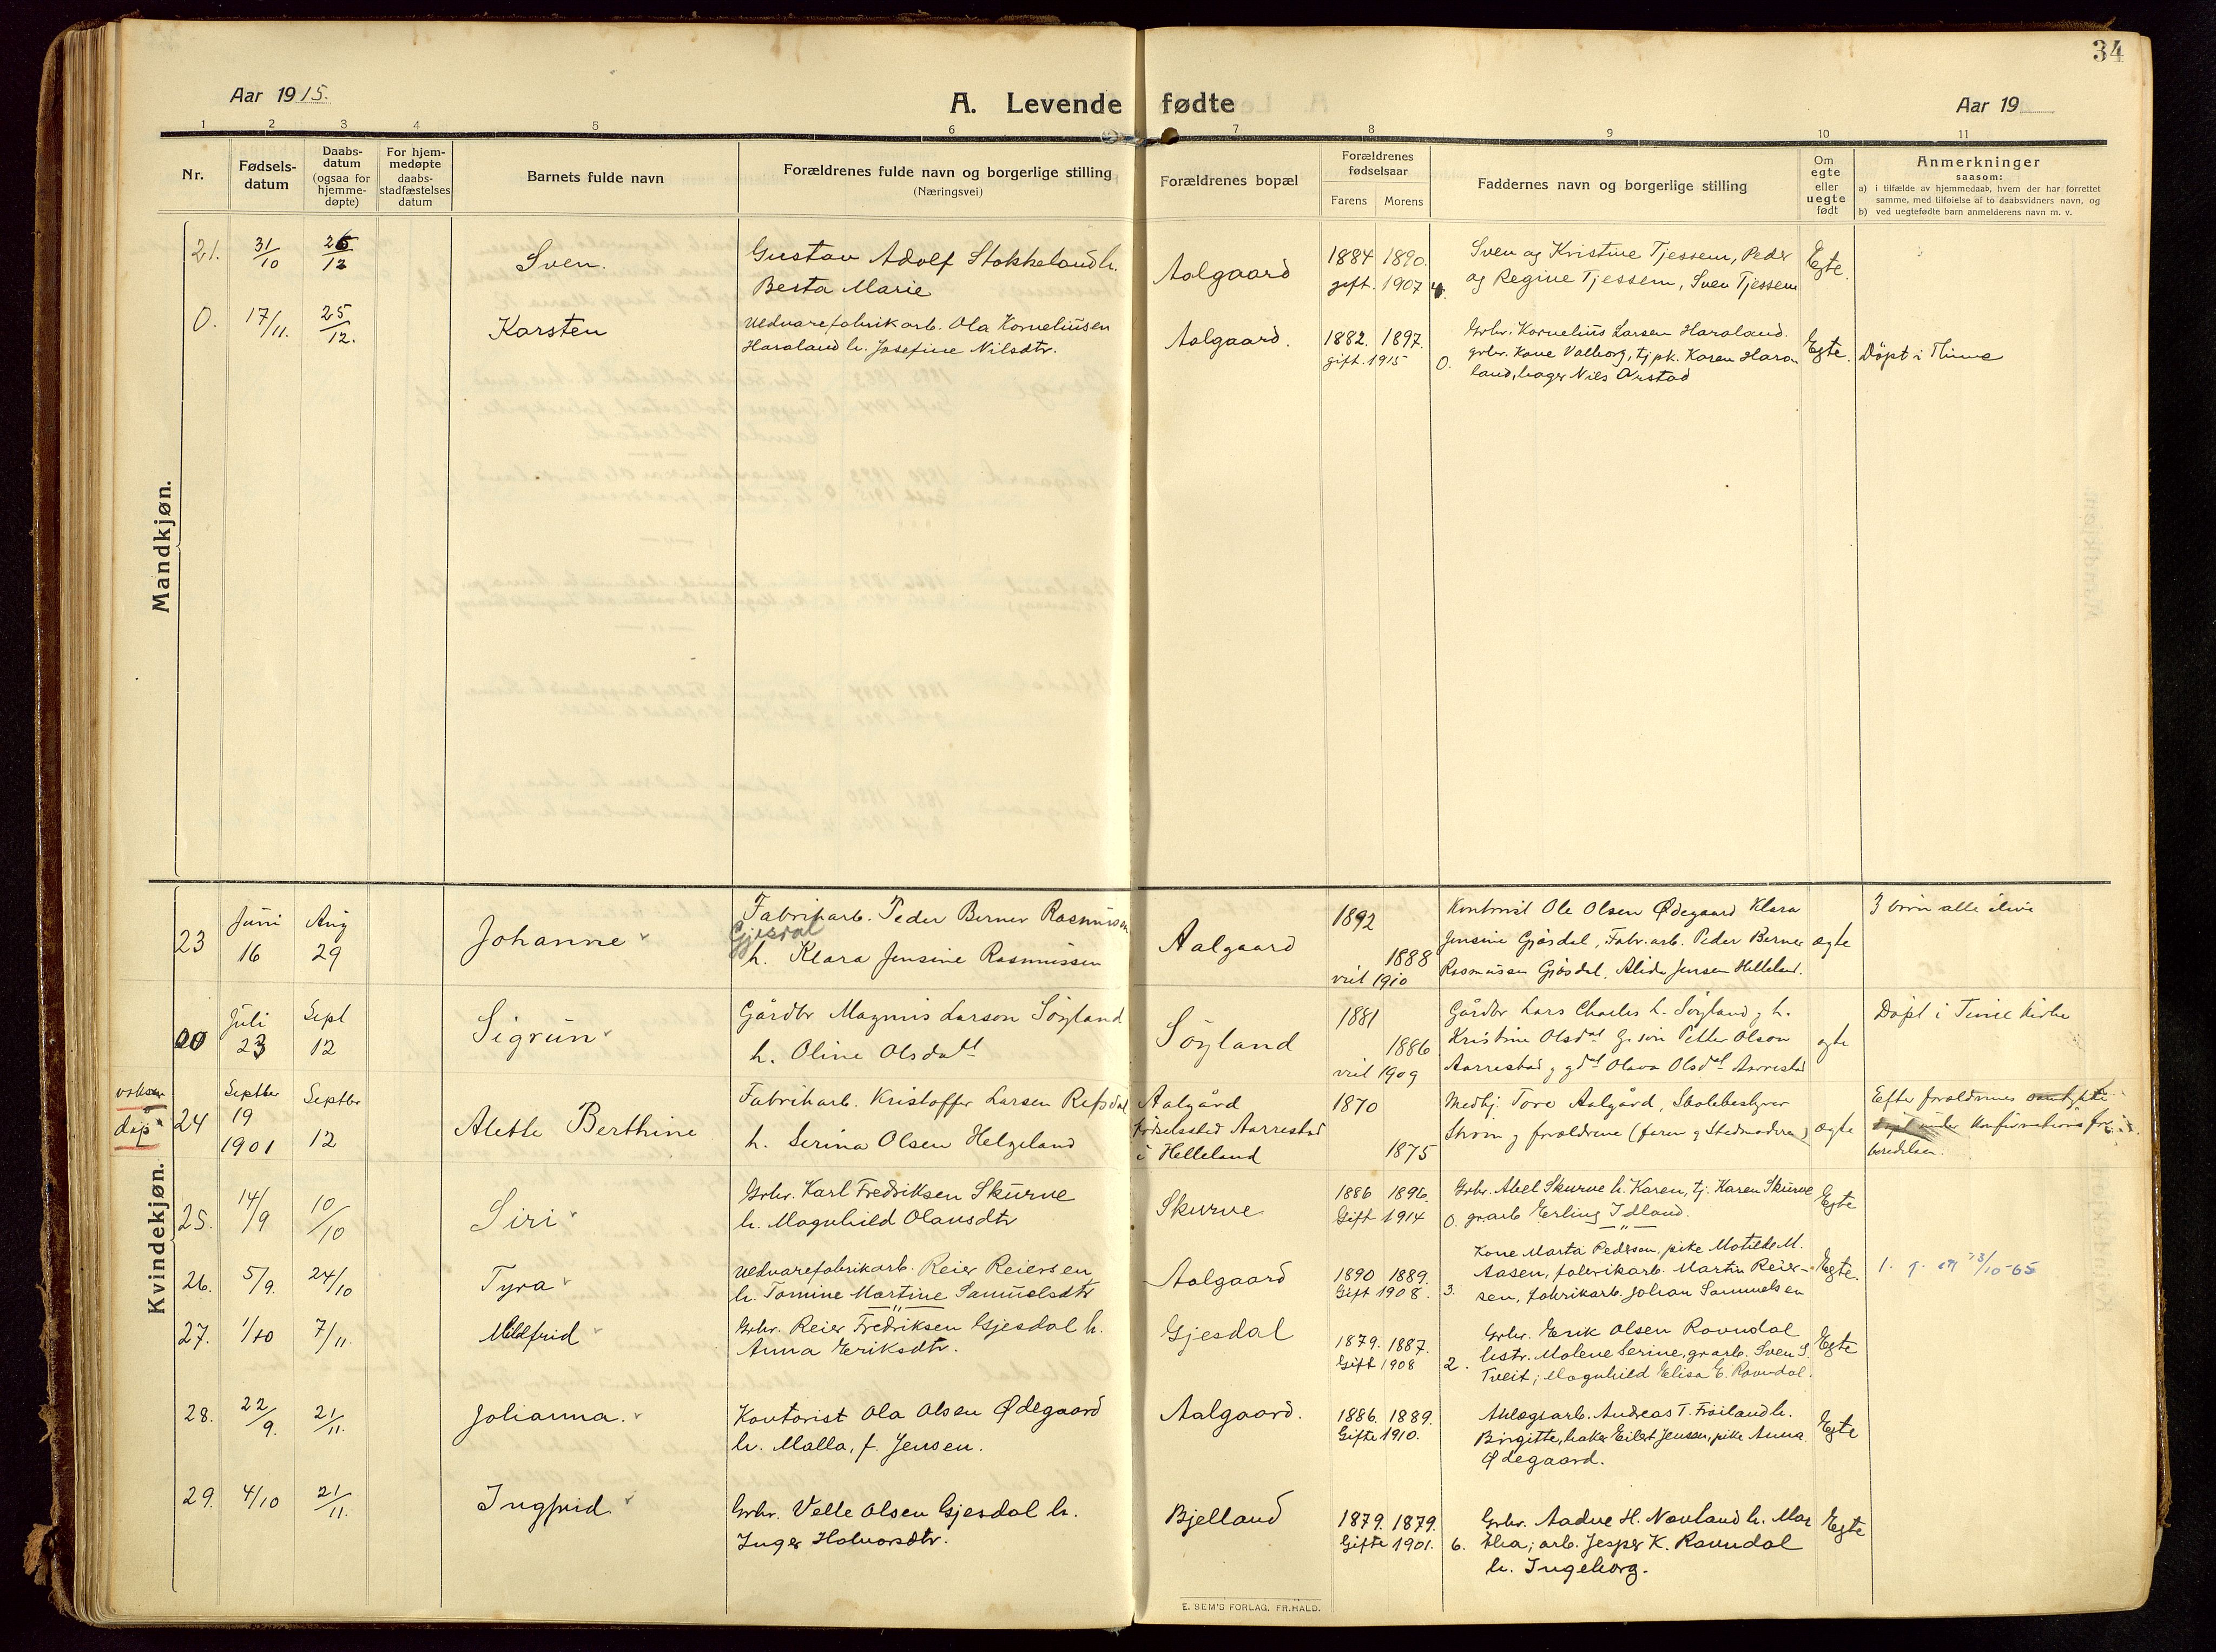 34
Aar 1915.
A. Levende fødte
Aar 19
1 2 3 4 5 6 7 8 9 10 11
Nr.
Fødsels-
datum
Daabs-
datum
(ogsaa for
hjemme-
døpte)
For hjem-
medøpte
daabs-
stadfæstelses
datum
Barnets fulde navn
Forældrenes fulde navn og borgerlige stilling
(Næringsvei)
Forældrenes bopæl
Forældrenes
fødselsaar
Farens Morens
Faddernes navn og borgerlige stilling
Om
egte
eller
uegte
født
Anmerkninger
saasom:
a) i tilfælde av hjemmedaab, hvem der har forrettet
samme, med tilføielse af to daabsvidners navn, og
b) ved uegtefødte barn anmelderens navn m. v.
Mandkjøn.
21. 31/10 26/12 Sven.
Gustav Adolf Stokkeland h.
Berta Marie
Aalgaard
1884 1890.
gift. 1907 4.
Sven og Kristine Tjessem, Peder
og Regine Tjessem, Sven Tjessem
Egte.
0. 17/11. 25/12. Karsten
Uldvarefabrikarb. Ola Korneliusen
Haraland h. Josefine Nilsdtr.
Aalgaard.
1882. 1897.
gift. 1915 0.
Grbr. Kornelius Larsen Haraland.
grbr. Kone Valborg, tj.pk. Karen Hara
land, bager Niels Arstad
Egte.
Döpt i Thime
Kvindekjøn.
23
Juni
16
Aug
29
Johanne
Fabrikarb. Peder Berner Rasmussen
Gjesdal
h. Klara Jensine Rasmussen
Aalgaard
1892
1888
viet 1910
Kontorist Ole Olsen Ødegaard Klara
Jensine Gjösdal, Fabr.arb. Peder Berner
Rasmussen Gjösdal, Alida Jensen Helleland.
ægte
3 börn alle ilive
00
Juli
23
Sept
12
Sigrun
Gårdbr Magnus Larson Söyland
h. Oline Olsdatt
Söyland
1881
1886
viet 1909
Gårdbr Lars Charles L. Söyland g h.
Kristine Olsdat G. sön Petter Olson
Aarrestad g gdat Olava Olsdat Aarrestad
egte
Döpt i Time Kirke
voksen
dåp
24
Septbr
19
1901
Septbr
12
Alette Berthine
Fabrikarb. Kristoffer Larsen Refsdal
h. Serina Olsen Helgeland
Aalgård
Födselssted Aarrestad
i Helleland
1870
1875
Medhj. Tore Aalgård, Skolebestyrer
Ström g forældrene (faren g Stedmoderen)
ægte
Efter forældrenes samtykke
döpt under Konfirmationsfor
beredelsen.
25. 14/9 10/10 Siri
Grbr. Karl Fredriksen Skurve
h. Magnhild Olausdtr
Skurve
1886 1896.
Gift 1914 0.
Grbr. Abel Skurve h. Karen, tj. Karen Skurve
gr.arb Erling Idland.
Egte
26. 5/9. 24/10 Tyra
Uldvarefabrikarb. Reier Reiersen
h. Tomine Martine Samuelsdtr
Aalgaard
1890 1889.
Gift 1908. 3.
Kone Marta Pedersen, pike Matilde M.
Aasen, fabrikarb. Martin Reier-
sen, fabrikarb. Johan Samuelsen
Egte.
27. 1/10 7/11. Mildfrid
Grbr. Reier Fredriksen Gjesdal h.
Anna Eriksdtr.
Gjesdal
1879. 1887.
Gift 1908 2.
Grbr. Erik Olsen Ravndal
hstr. Malene Serine, gr.arb. Sven S.
Tveit, Magnhild Elisa E. Ravndal.
Egte
28. 22/9. 21/11. Johanna.
Kontorist Ola Olsen Ødegaard
h. Malla, f. Jensen.
Aalgaard.
1886. 1889.
Gifte 1910.
Anlægsarb. Andreas T. Fröiland h.
Birgitte, baker Eilert Jensen, pike Anna
Ødegaard.
Egte
29. 4/10 21/11. Ingfrid
Grbr. Velle Olsen Gjesdal h.
Inger Halvorsdtr.
Bjelland
1879. 1879.
Gifte 1901. 6.
Grbr. Aadne H. Nevland h. Mar
tha; arb. Jesper K. Ravndal
h. Ingeborg.
Egte
E. SEM'S FORLAG. FR.HALD.